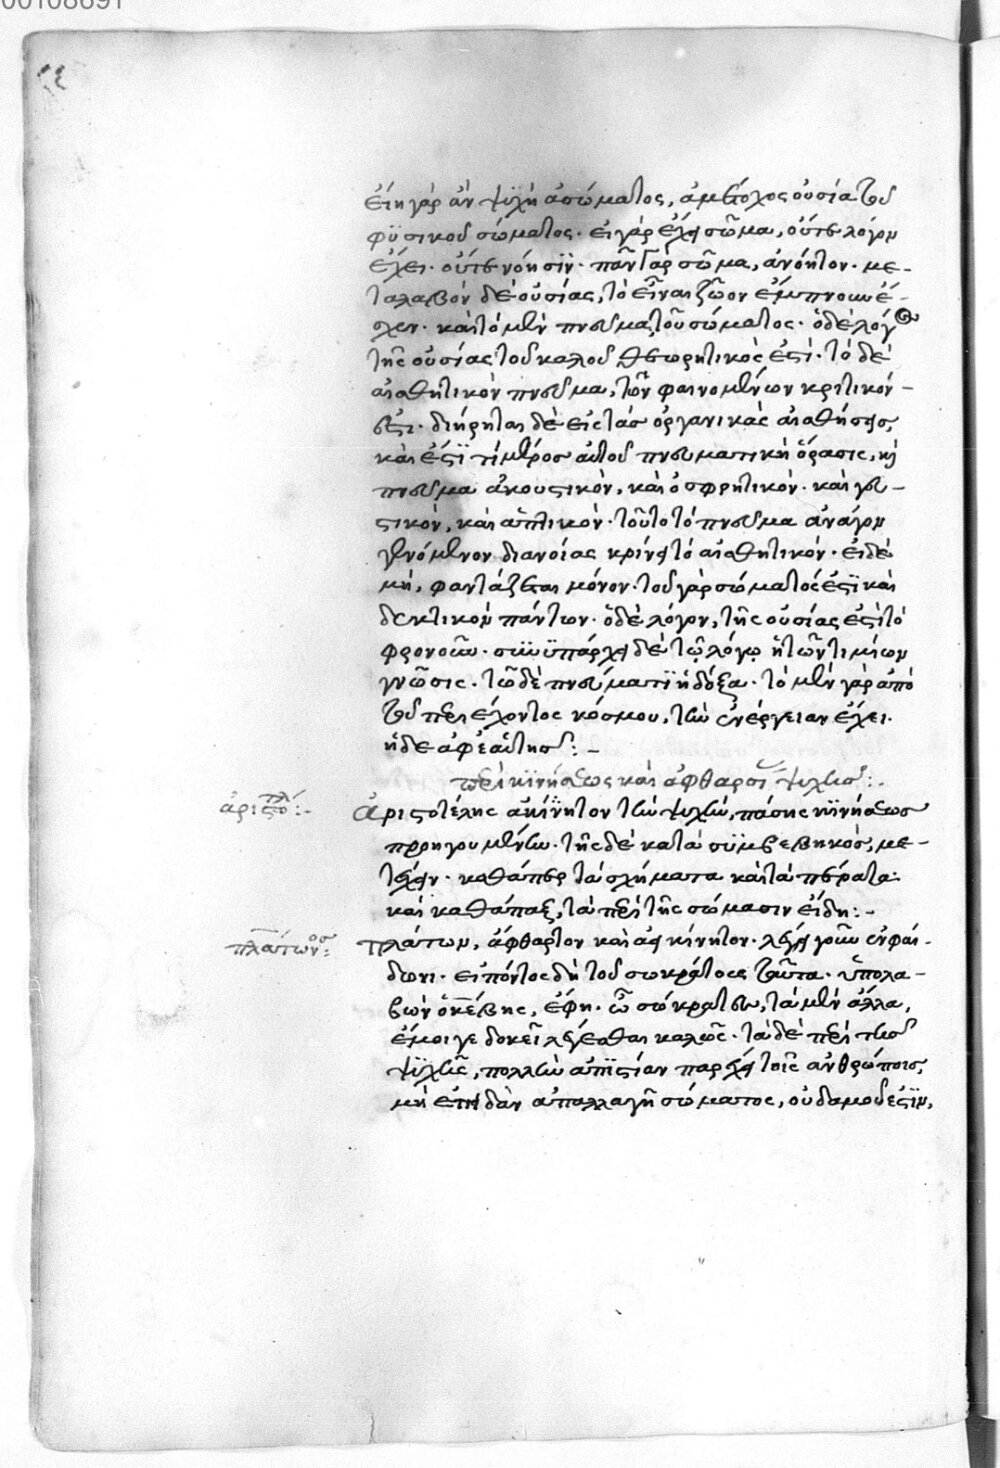 εἴη γὰρ ἂν ψυχὴ ἀσώματος, ἀμέτοχος οὐσία τοῦ
φυσικοῦ σώματος· εἰ γὰρ ἔχει σῶμα, οὔτε λόγον
ἔχει· οὔτε νόησιν· πᾶν γὰρ σῶμα, ἀνόητον· με-
ταλαβὸν δὲ οὐσίας, τὸ εἶναι ζῶον ἔμπνουν ἔ-
σχεν· καὶ τὸ μὲν πνεῦμα, τοῦ σώματος· ὁ δὲ λόγος
τῆς οὐσίας τοῦ καλοῦ θεωρητικός ἐστι· τὸ δὲ
αἰσθητικὸν πνεῦμα, τῶν φαινομένων κριτικόν-
ἐστι· διῄρηται δὲ εἰς τὰς ὀργανικὰς αἰσθήσεις,
καὶ ἔστι τὶ μέρος αὐτοῦ πνευματικὴ ὅρασις, καὶ
πνεῦμα ἀκουστικὸν, καὶ ὀσφρητικὸν· καὶ γευ-
στικὸν, καὶ ἁπτικὸν· τοῦτο τὸ πνεῦμα ἀνάγον
γενόμενον διανοίας κρίνει τὸ αἰσθητικόν· εἰ δὲ
μὴ, φαντάζεται μόνον· τοῦ γὰρ σώματός ἐστι καὶ
δεκτικὸν πάντων· ὁ δὲ λόγον, τῆς οὐσίας ἐστὶ τὸ
φρονοῦν· συνυπάρχει δὲ τῷ λόγῳ ἡ τῶν τιμίων
γνῶσις· τῶ δὲ πνεύματι ἡ δόξα· τὸ μὲν γὰρ ἀπὸ
τοῦ περιέχοντος κόσμου, τὴν ἐνέργειαν ἔχει·
ἡ δὲ ἀφ' ἑαυτῆς:-
περὶ κινήσεως καὶ ἀφθαρσί ψυχῆς:-
ἀριστοτέλ:- Ἀριστοτέλης ἀκίνητον τὴν ψυχὴν, πάσης κινήσεως
προηγουμένην· τῆς δὲ κατὰ συμβεβηκὸς, με-
τέχειν· καθάπερ τὰ σχήματα καὶ τὰ πέρατα·
καὶ καθάπαξ, τὰ περὶ τῆς σώμασιν εἴδη:-
πλάτωνος: Πλάτων, ἄφθαρτον καὶ ἀεικίνητον· λέγει γοῦν ἐν φαί-
δωνι· εἰπόντος δὴ τοῦ σωκράτους ταῦτα· ὑπολα-
βὼν ὁ κέβης, ἔφη· ὦ σώκρατες, τὰ μὲν ἄλλα,
ἔμοιγε δοκεῖ λέγεσθαι καλῶς· τὰ δὲ περὶ τῆς
ψυχῆς, πολλὴν ἀπιστίαν παρέχει τοῖς ἀνθρώποις,
μὴ ἐπειδὰν ἀπαλλαγῇ σώματος, οὐδαμοῦ ἔστιν,